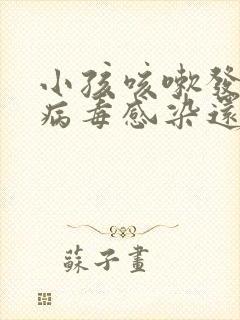 小孩咳嗽發
病毒感染還
蘇子畫